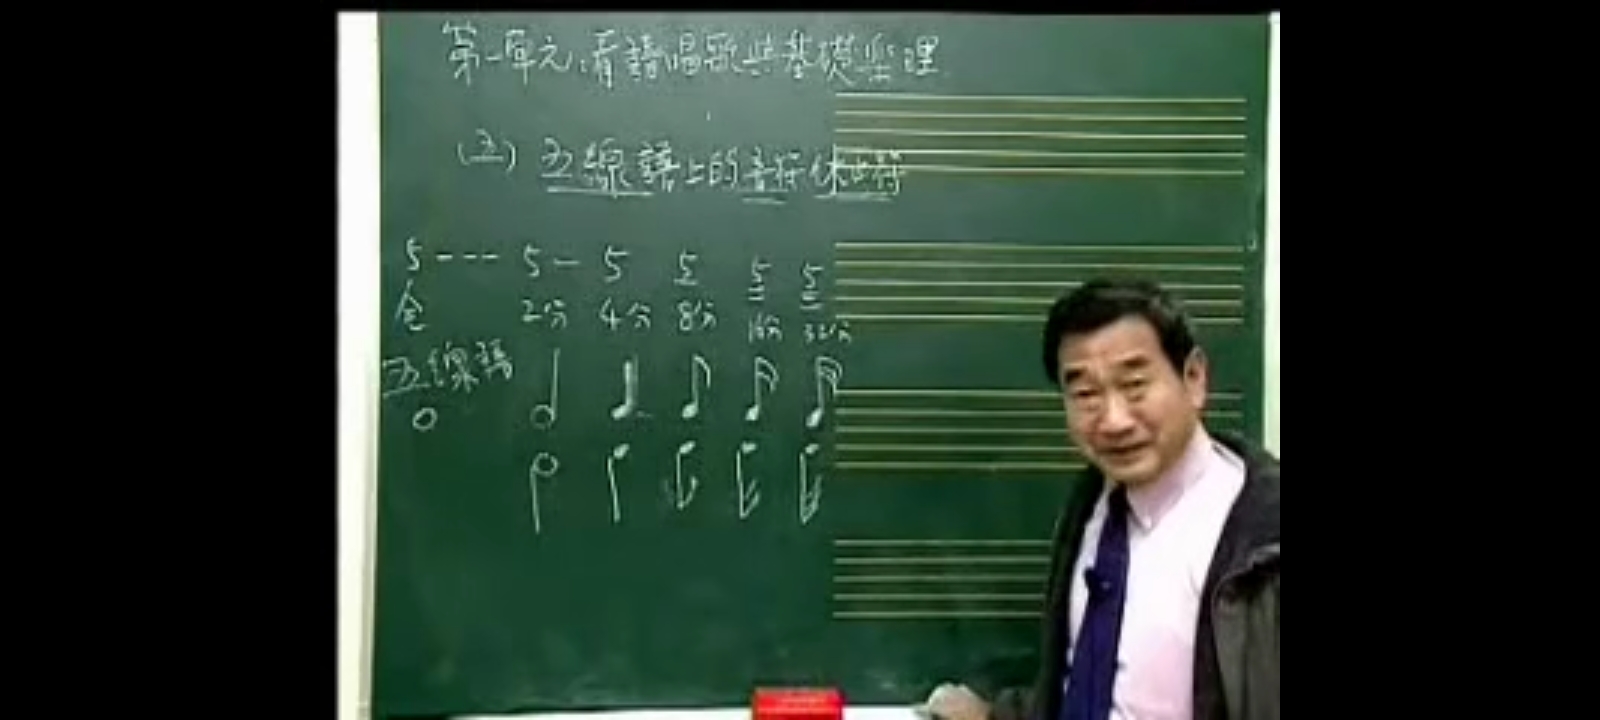 第一單元:看譜唱歌與基礎樂理
(五) 五線譜上的音符休止符
5 - - - 5 - 5 5 5 5
全 2分 4分 8分 16分 32分
五線譜